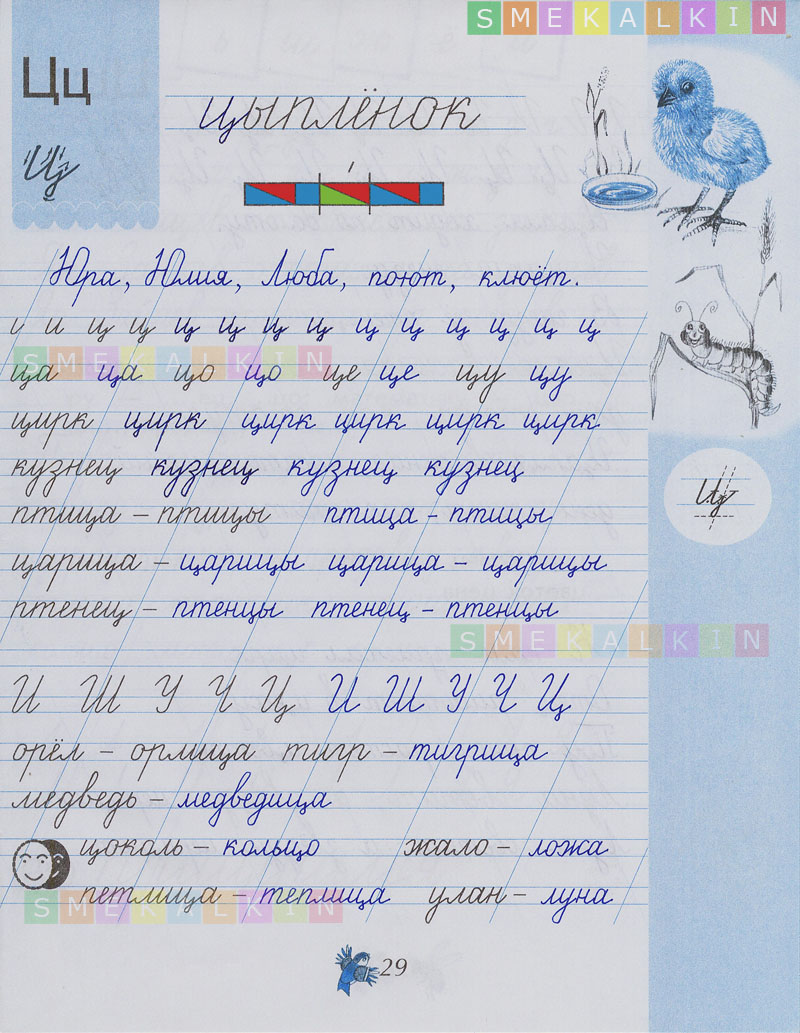 SMEKALKIN
Цц
Ц
цыплёнок
Юра, Юлия, Люба, поют, клюёт.
и и ц ц ц ц ц ц ц ц ц ц ц ц
SMEKALKIN
ца ца цо цо це це цу цу
цирк цирк цирк цирк цирк цирк
кузнец кузнец кузнец кузнец
Ц
птица – птицы птица – птицы
царица – царицы царица – царицы
птенец – птенцы птенец – птенцы
SMEKALKIN
И Ш У Ч Ц И Ш У Ч Ц
орёл – орлица тигр – тигрица
медведь – медведица
цоколь – кольцо жало – ложа
петлица – теплица улан – луна
SMEKALKIN
29